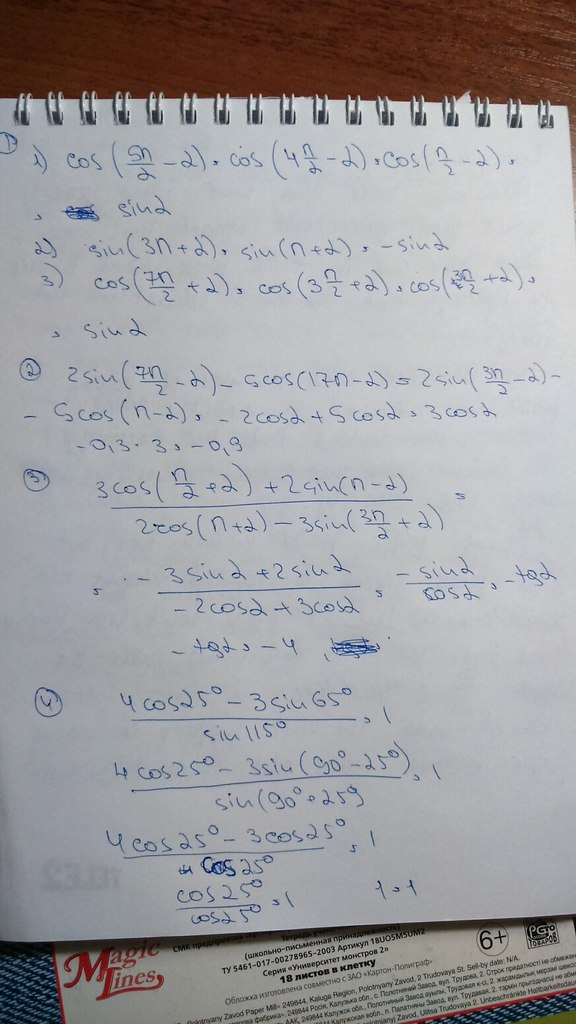 ① 1) cos(5π/2 − α) = cos(4π/2 − α) = cos(π/2 − α) =
= sinα
2) sin(3π+α) = sin(π+α) = −sinα
3) cos(7π/2 + α) = cos(3π/2 + α) = cos(3π/2 + α) =
= sinα
② 2sin(7π/2 − α) − 5cos(17π − α) = 2sin(3π/2 − α) −
− 5cos(π − α) = −2cosα + 5cosα = 3cosα
−0,3 · 3 = −0,9
③ (3cos(π/2 + α) + 2sin(π − α)) / (2cos(π + α) − 3sin(3π/2 + α)) =
= (−3sinα + 2sinα) / (−2cosα + 3cosα) = −sinα / cosα = −tgα
−tgα = −4
④ (4cos25° − 3sin65°) / sin115° = 1
(4cos25° − 3sin(90° − 25°)) / sin(90° + 25°) = 1
(4cos25° − 3cos25°) / cos25° = 1
cos25° / cos25° = 1 1 = 1
Magic Lines
(школьно-письменная принадлежность)
ТУ 5461-017-00278965-2003 Артикул 18U05M5UM2
Серия «Университет монстров 2»
18 листов в клетку
Обложка изготовлена совместно с ЗАО «Картон-Полиграф»
6+
РСТ